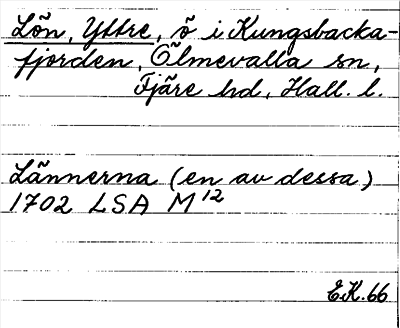 Lön, Yttre, ö i Kungsbacka-
fjorden, Ölmevalla sn,
Fjäre hd, Hall. l.
Lännerna (en av dessa)
1702 LSA M12
E.K. 66